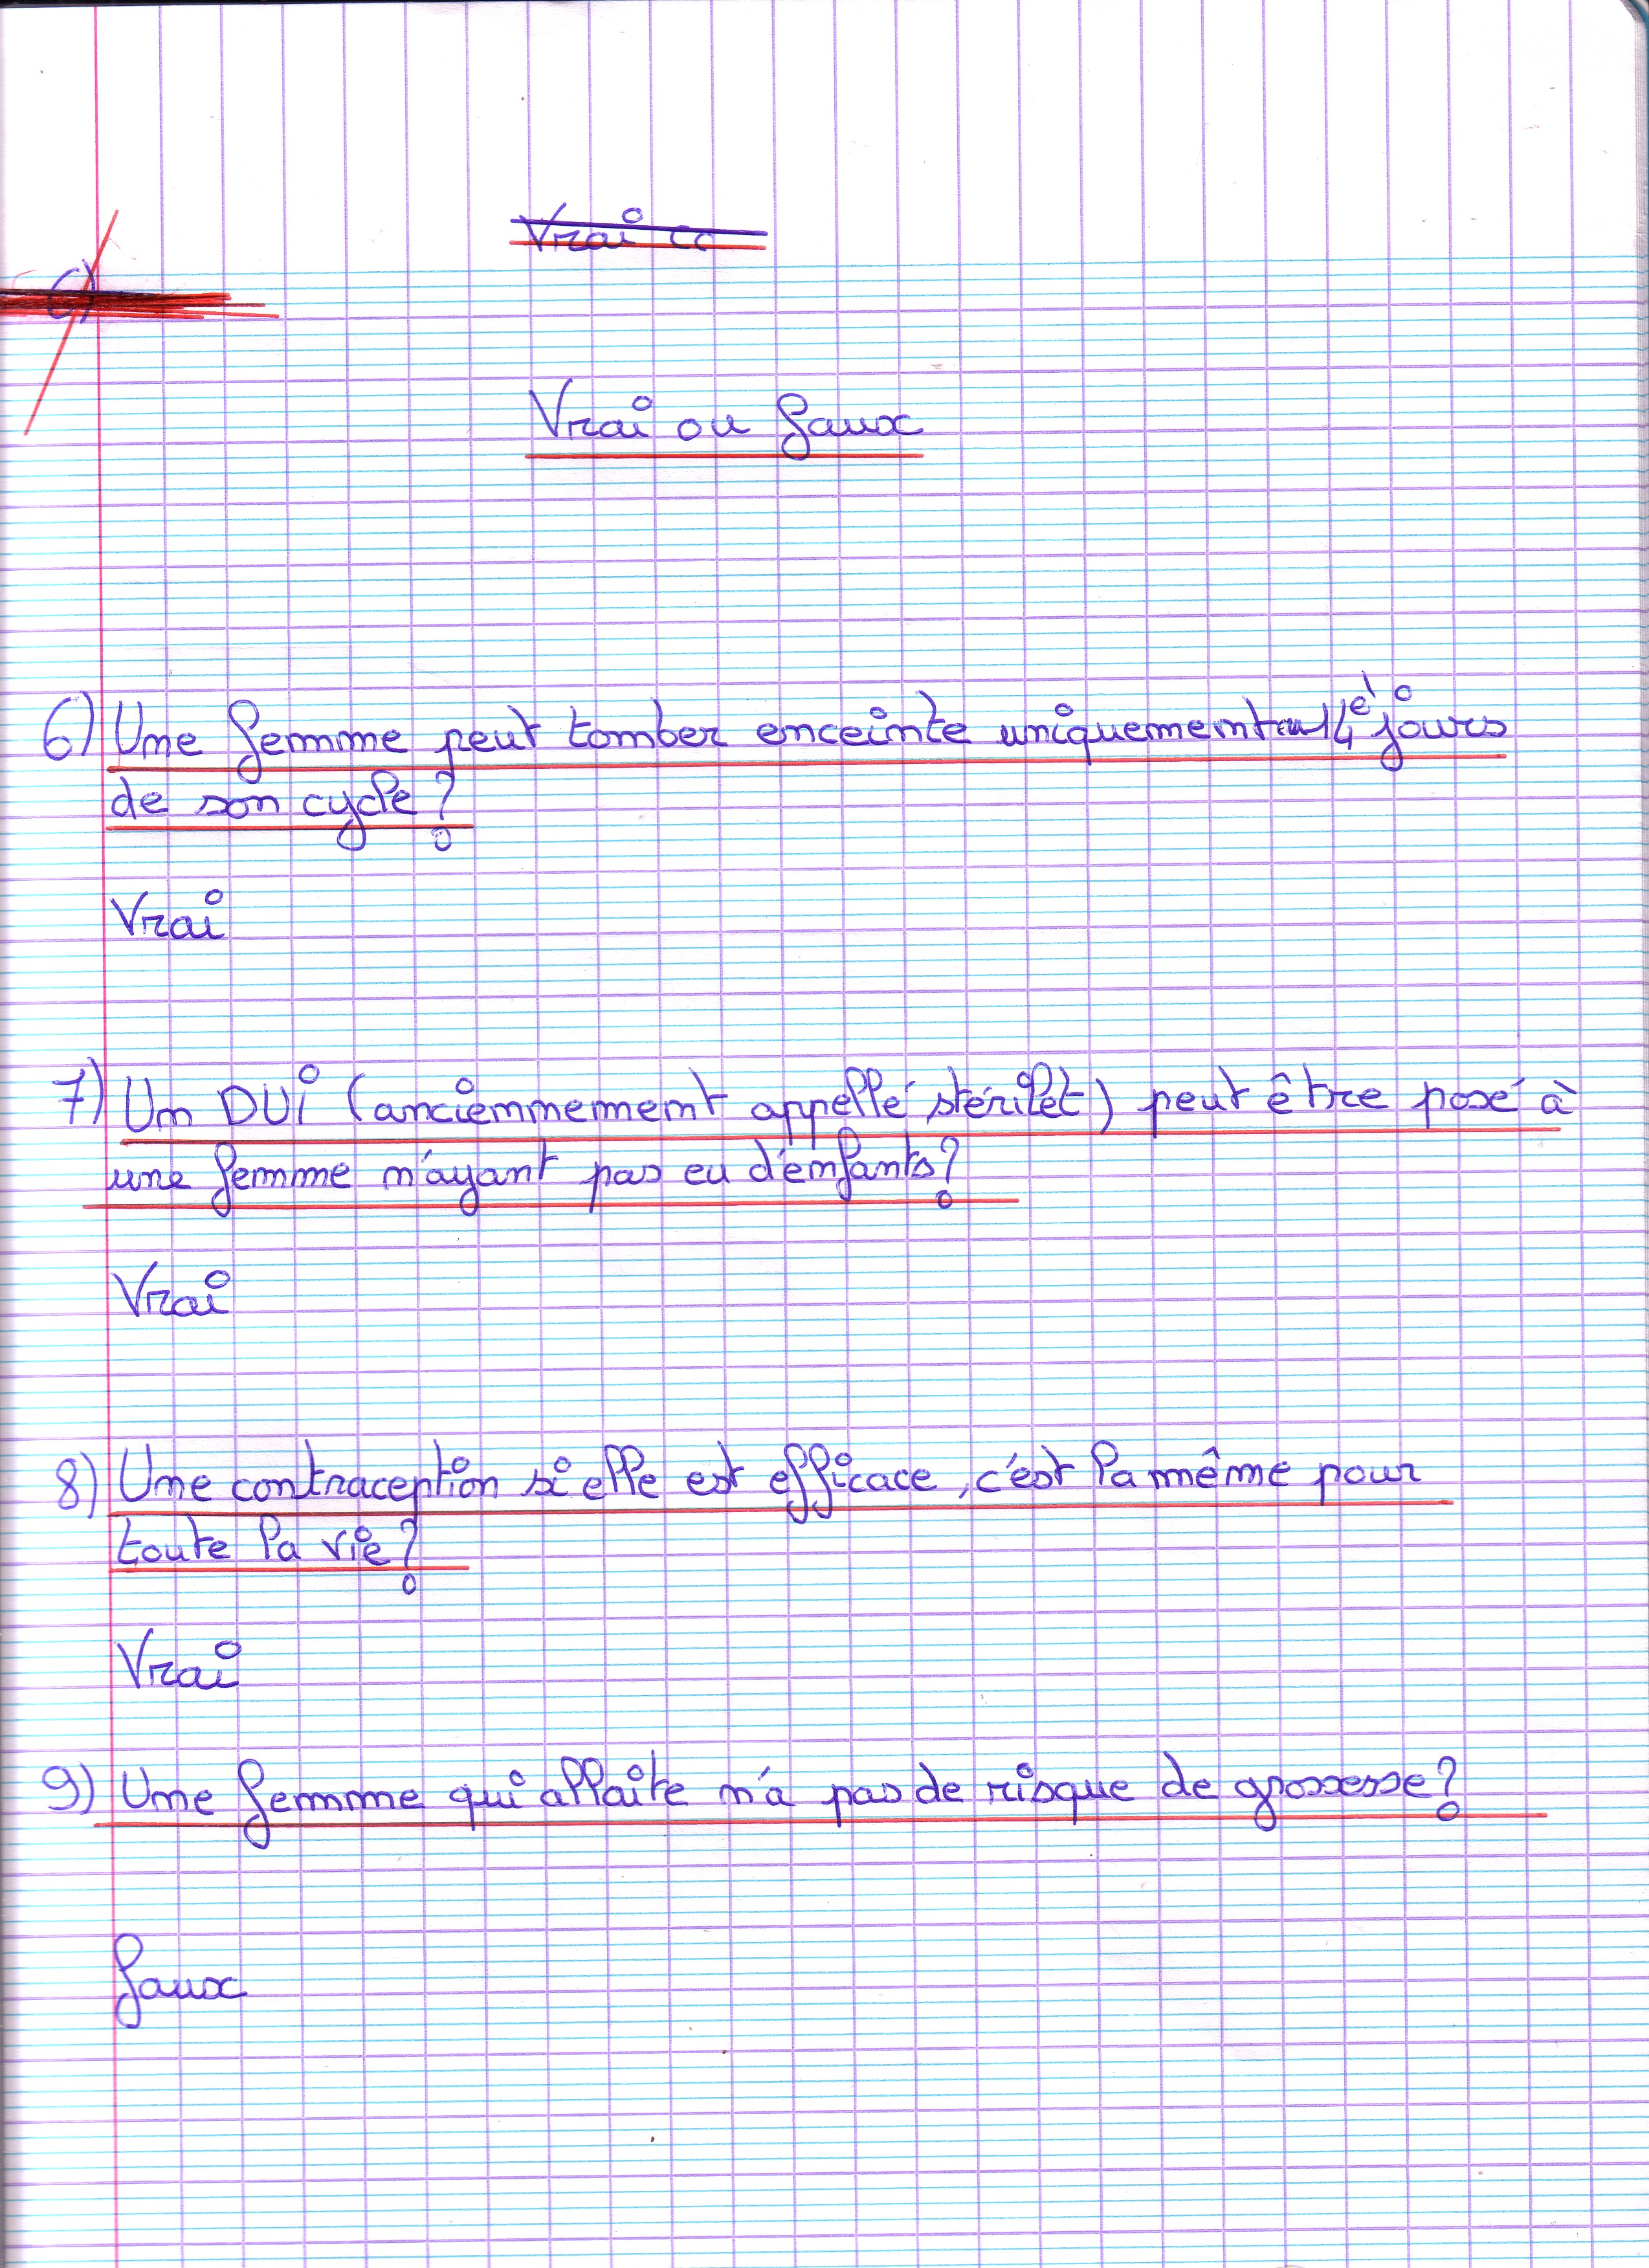 Vrai cc
6)
Vrai ou faux
6) Une femme peut tomber enceinte uniquement au 14è jours
de son cycle ?
Vrai
7) Un DUI (anciemmement appellé stérilet) peut être posé à
une femme n'ayant pas eu d'enfants ?
Vrai
8) Une contraception si elle est efficace, c'est la même pour
toute la vie ?
Vrai
9) Une femme qui allaite n'a pas de risque de grossesse ?
faux